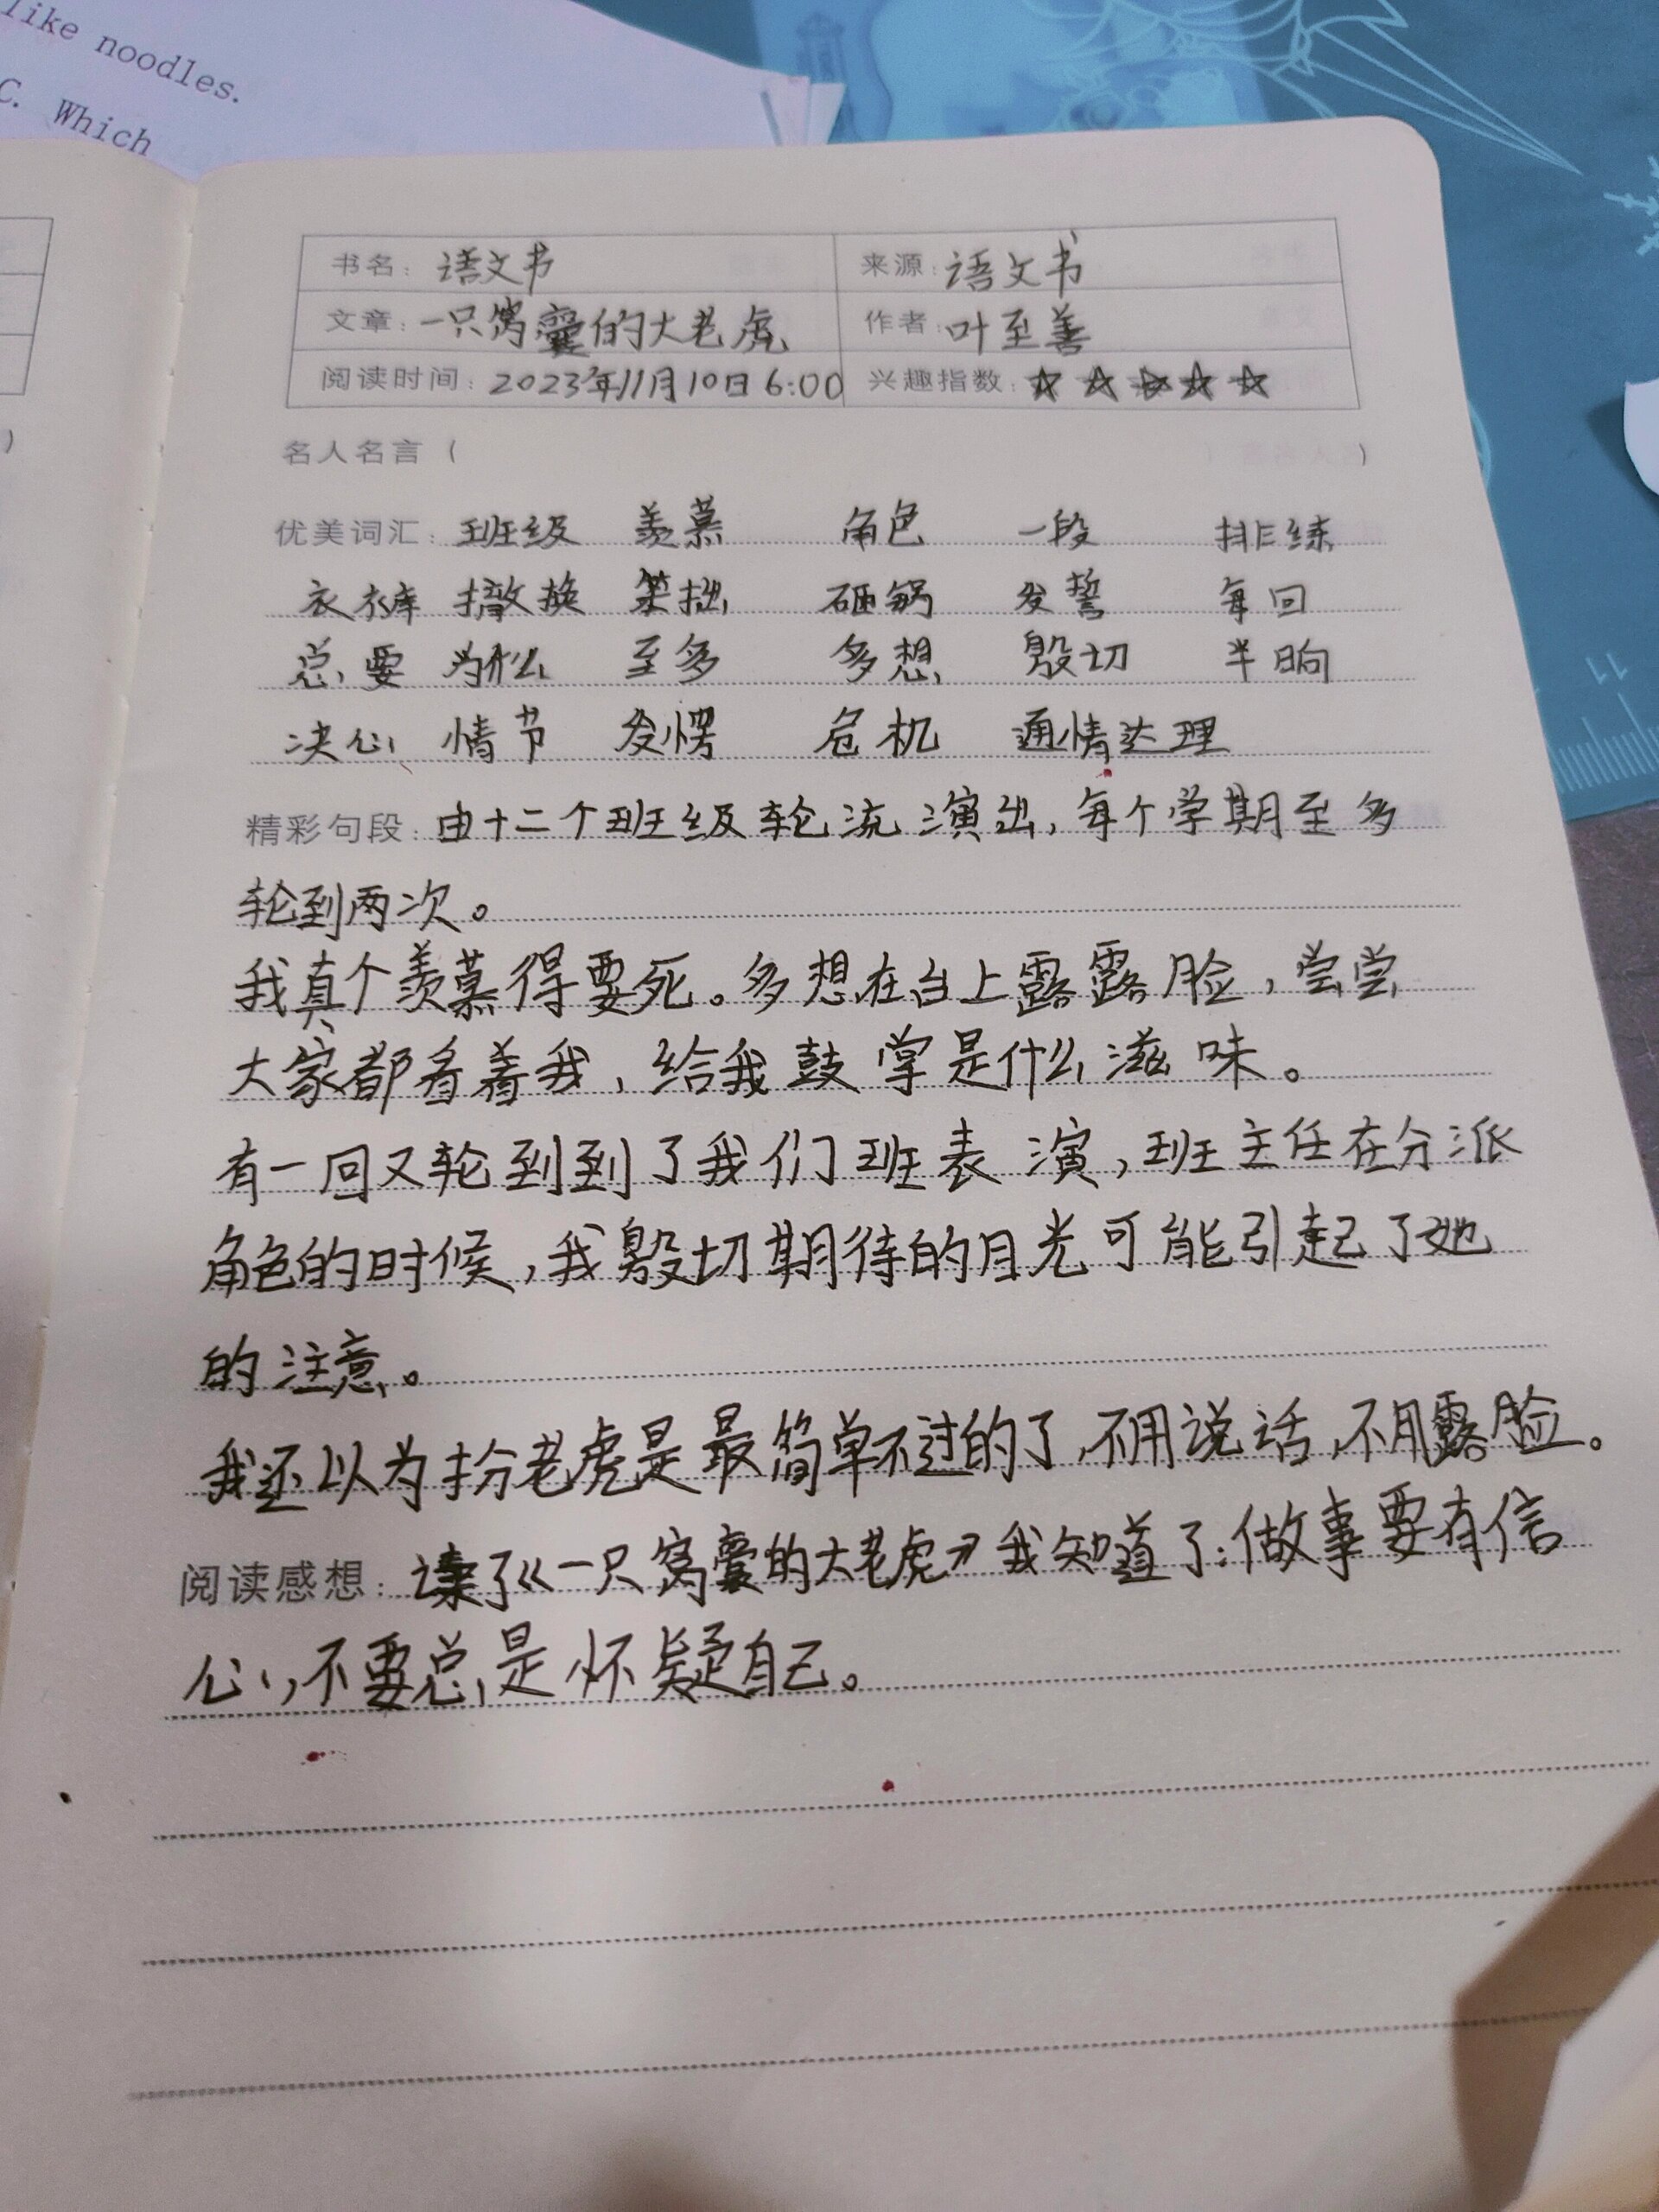 like noodles.
C. Which
书名: 语文书 来源: 语文书
文章: 一只窝囊的大老虎 作者: 叶至善
阅读时间: 2023年11月10日6:00 兴趣指数: ☆☆☆☆☆
名人名言 ( )
优美词汇: 班级 羡慕 角色 一段 排练
衣裤 撤换 笨拙 砸锅 发誓 每回
总要 为什么 至多 多想 殷切 半晌
决心 情节 发愣 危机 通情达理
精彩句段: 由十二个班级轮流演出,每个学期至多
轮到两次。
我真个羡慕得要死。多想在台上露露脸,尝尝
大家都看着我,给我鼓掌是什么滋味。
有一回又轮到到了我们班表演,班主任在分派
角色的时候,我殷切期待的目光可能引起了她
的注意。
我还以为扮老虎是最简单不过的了,不用说话,不用露脸。
阅读感想: 读了《一只窝囊的大老虎》我知道了:做事要有信
心,不要总是怀疑自己。
11